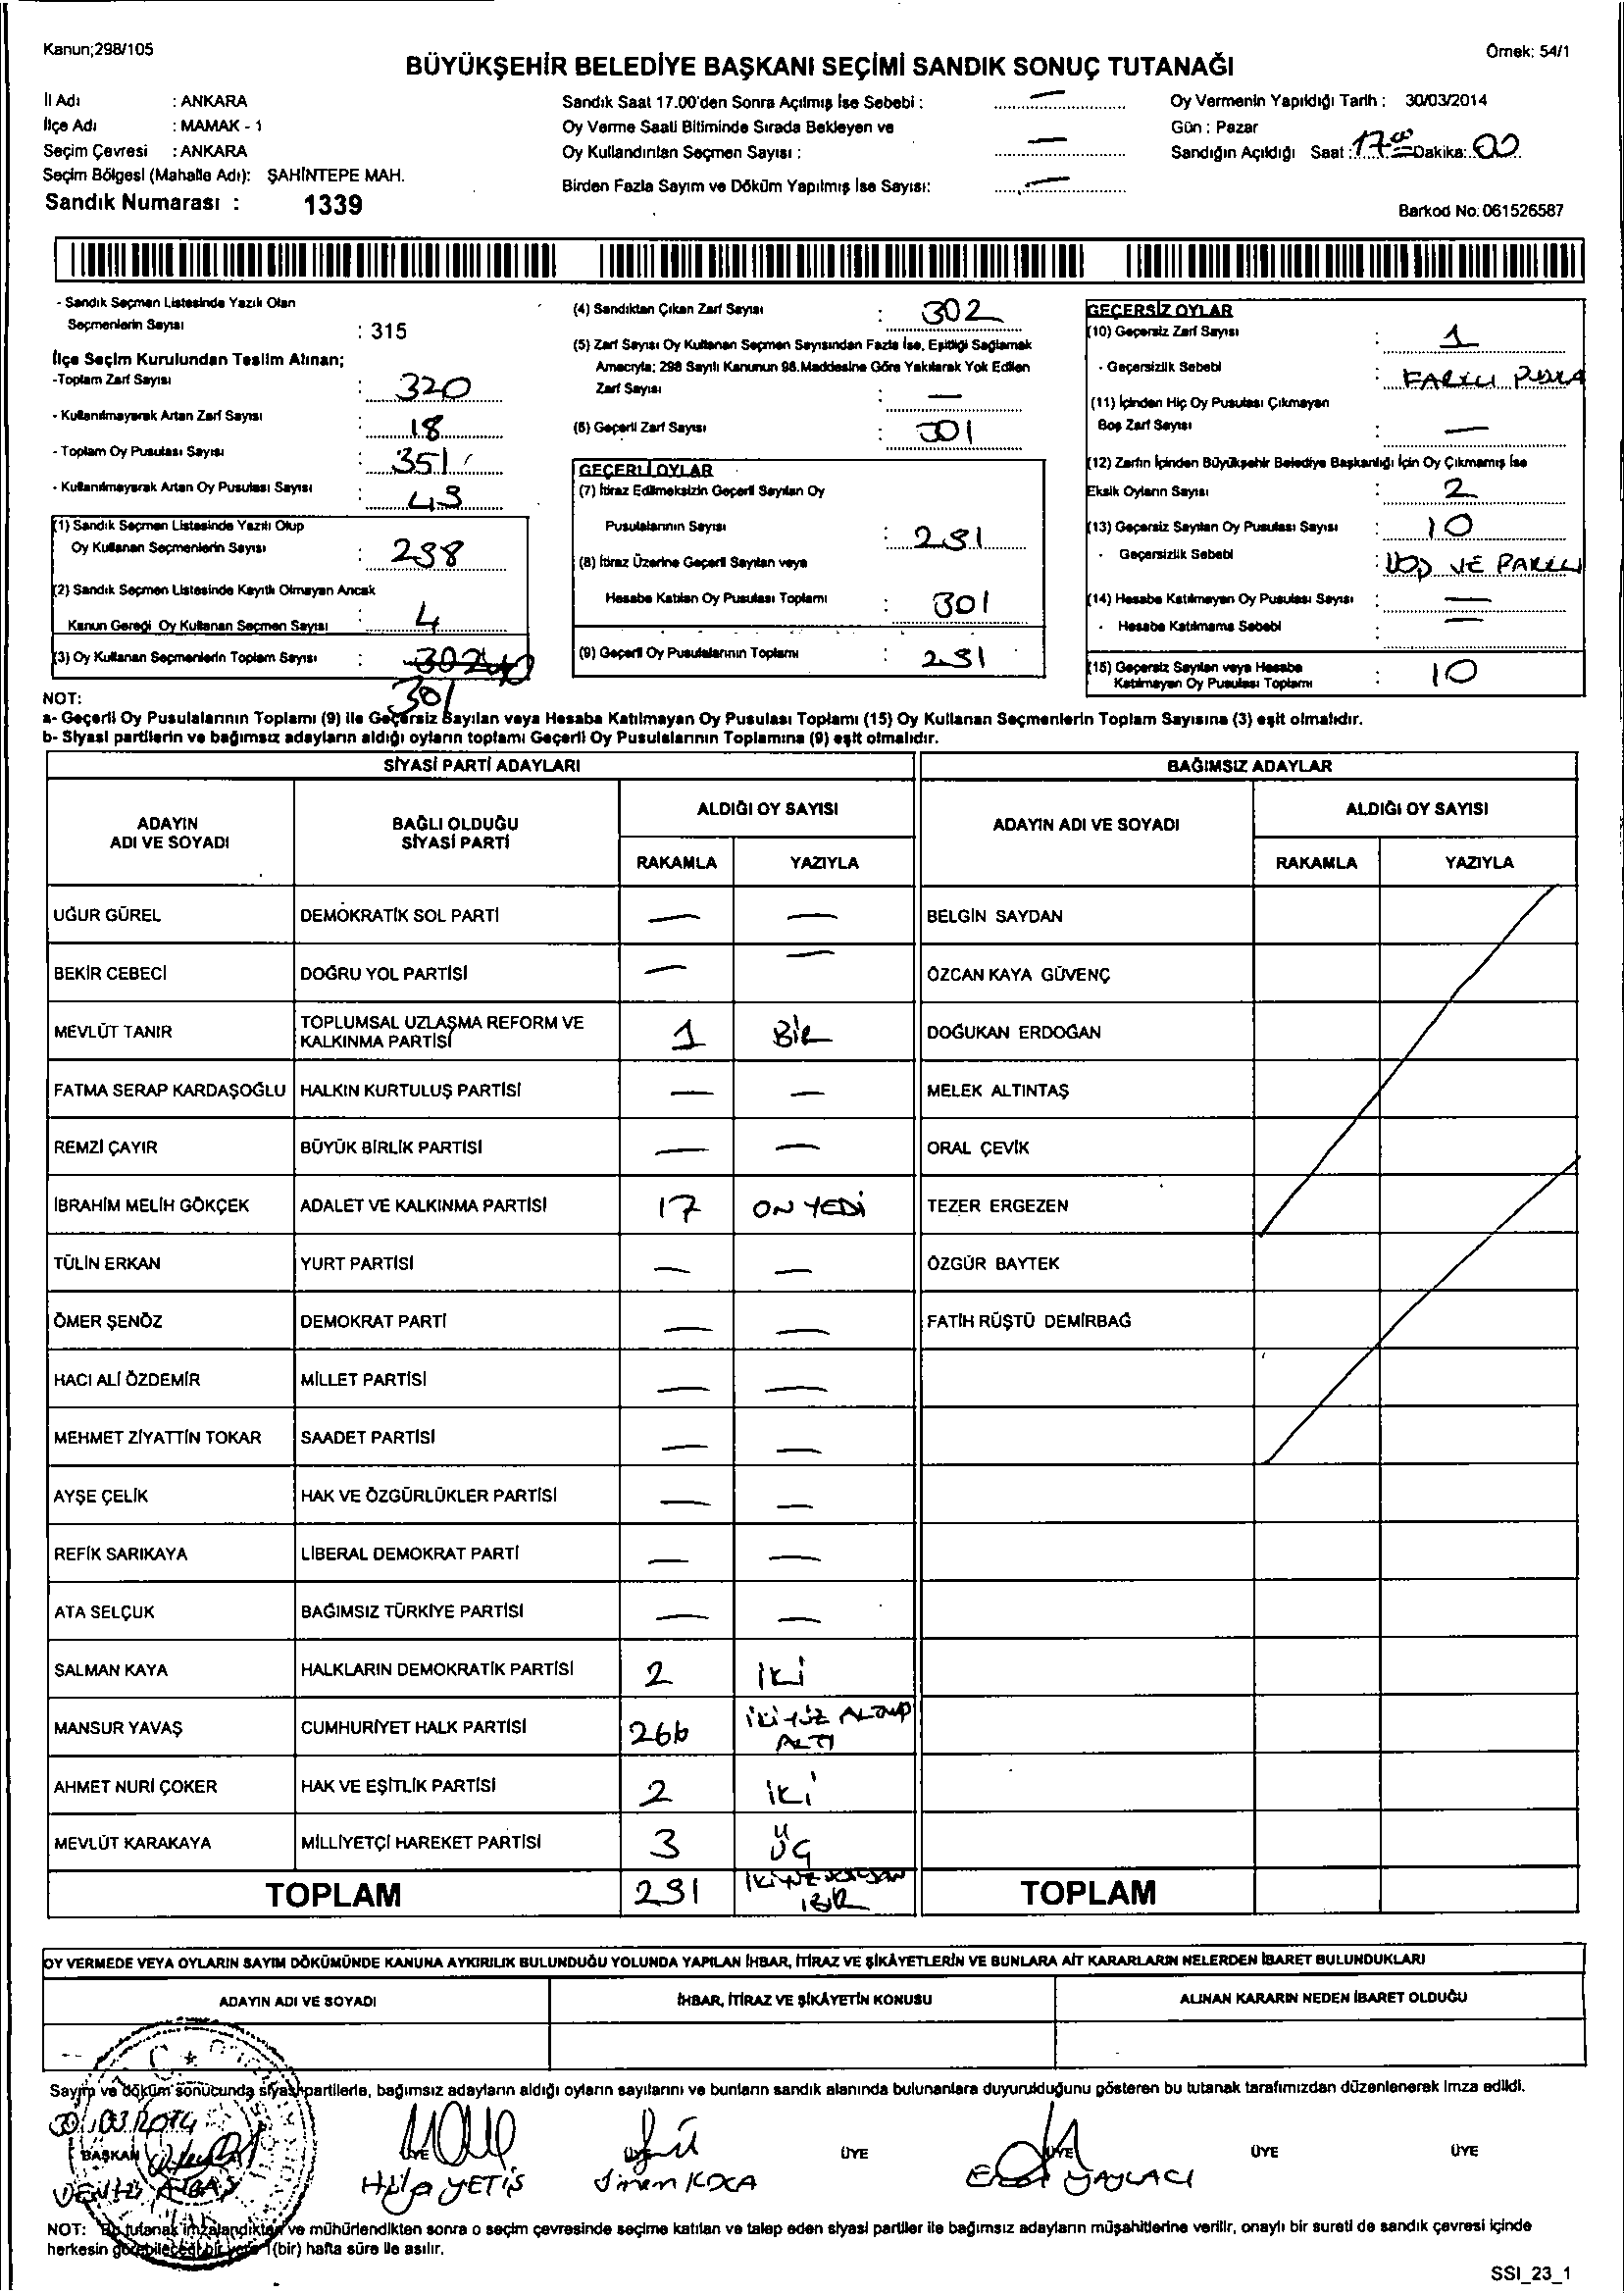 Kanun;298/105
Örnek: 54/1
BÜYÜKŞEHİR BELEDİYE BAŞKANI SEÇİMİ SANDIK SONUÇ TUTANAĞI
İl Adı : ANKARA
İlçe Adı : MAMAK - 1
Seçim Çevresi : ANKARA
Seçim Bölgesi (Mahalle Adı): ŞAHİNTEPE MAH.
Sandık Numarası : 1339
Sandık Saat 17.00'den Sonra Açılmış İse Sebebi : —
Oy Verme Saati Bitiminde Sırada Bekleyen ve
Oy Kullandırılan Seçmen Sayısı : —
Birden Fazla Sayım ve Döküm Yapılmış İse Sayısı: —
Oy Vermenin Yapıldığı Tarih : 30/03/2014
Gün : Pazar
Sandığın Açıldığı Saat : 17.00 Dakika: 00
Barkod No: 061526587
- Sandık Seçmen Listesinde Yazılı Olan
Seçmenlerin Sayısı : 315
İlçe Seçim Kurulundan Teslim Alınan;
-Toplam Zarf Sayısı : 320
- Kullanılmayarak Artan Zarf Sayısı : 18
- Toplam Oy Pusulası Sayısı : 351
- Kullanılmayarak Artan Oy Pusulası Sayısı : 49
(1) Sandık Seçmen Listesinde Yazılı Olup
Oy Kullanan Seçmenlerin Sayısı : 298
(2) Sandık Seçmen Listesinde Kayıtlı Olmayan Ancak
Kanun Gereği Oy Kullanan Seçmen Sayısı : 4
(3) Oy Kullanan Seçmenlerin Toplam Sayısı : 302
301
(4) Sandıktan Çıkan Zarf Sayısı : 302
(5) Zarf Sayısı Oy Kullanan Seçmen Sayısından Fazla İse, Eşitliği Sağlamak
Amacıyla; 298 Sayılı Kanunun 98.Maddesine Göre Yakılarak Yok Edilen
Zarf Sayısı : —
(6) Geçerli Zarf Sayısı : 301
GEÇERLİ OYLAR
(7) İtiraz Edilmeksizin Geçerli Sayılan Oy
Pusulalarının Sayısı : 291
(8) İtiraz Üzerine Geçerli Sayılan veya
Hesaba Katılan Oy Pusulası Toplamı : 301
(9) Geçerli Oy Pusulalarının Toplamı : 291
GEÇERSİZ OYLAR
(10) Geçersiz Zarf Sayısı : 1
- Geçersizlik Sebebi : FARKLI PUSULA
(11) İçinden Hiç Oy Pusulası Çıkmayan
Boş Zarf Sayısı : —
(12) Zarfın İçinden Büyükşehir Belediye Başkanlığı İçin Oy Çıkmamış İse
Eksik Oyların Sayısı : 2
(13) Geçersiz Sayılan Oy Pusulası Sayısı : 10
- Geçersizlik Sebebi : VE FARKLI
(14) Hesaba Katılmayan Oy Pusulası Sayısı : —
- Hesaba Katılmama Sebebi : —
(15) Geçersiz Sayılan veya Hesaba
Katılmayan Oy Pusulası Toplamı : 10
NOT:
a- Geçerli Oy Pusulalarının Toplamı (9) ile Geçersiz Sayılan veya Hesaba Katılmayan Oy Pusulası Toplamı (15) Oy Kullanan Seçmenlerin Toplam Sayısına (3) eşit olmalıdır.
b- Siyasi partilerin ve bağımsız adayların aldığı oyların toplamı Geçerli Oy Pusulalarının Toplamına (9) eşit olmalıdır.
SİYASİ PARTİ ADAYLARI
BAĞIMSIZ ADAYLAR
ADAYIN ADI VE SOYADI
BAĞLI OLDUĞU SİYASİ PARTİ
ALDIĞI OY SAYISI
RAKAMLA YAZIYLA
ADAYIN ADI VE SOYADI
ALDIĞI OY SAYISI
RAKAMLA YAZIYLA
UĞUR GÜREL DEMOKRATİK SOL PARTİ — — BELGİN SAYDAN
BEKİR CEBECİ DOĞRU YOL PARTİSİ — — ÖZCAN KAYA GÜVENÇ
MEVLÜT TANIR TOPLUMSAL UZLAŞMA REFORM VE KALKINMA PARTİSİ 1 BİR DOĞUKAN ERDOĞAN
FATMA SERAP KARDAŞOĞLU HALKIN KURTULUŞ PARTİSİ — — MELEK ALTINTAŞ
REMZİ ÇAYIR BÜYÜK BİRLİK PARTİSİ — — ORAL ÇEVİK
İBRAHİM MELİH GÖKÇEK ADALET VE KALKINMA PARTİSİ 17 ON YEDİ TEZER ERGEZEN
TÜLİN ERKAN YURT PARTİSİ — — ÖZGÜR BAYTEK
ÖMER ŞENÖZ DEMOKRAT PARTİ — — FATİH RÜŞTÜ DEMİRBAĞ
HACI ALİ ÖZDEMİR MİLLET PARTİSİ — —
MEHMET ZİYATTİN TOKAR SAADET PARTİSİ — —
AYŞE ÇELİK HAK VE ÖZGÜRLÜKLER PARTİSİ — —
REFİK SARIKAYA LİBERAL DEMOKRAT PARTİ — —
ATA SELÇUK BAĞIMSIZ TÜRKİYE PARTİSİ — —
SALMAN KAYA HALKLARIN DEMOKRATİK PARTİSİ 2 İKİ
MANSUR YAVAŞ CUMHURİYET HALK PARTİSİ 266 İKİ YÜZ ALTMIŞ ALTI
AHMET NURİ ÇOKER HAK VE EŞİTLİK PARTİSİ 2 İKİ
MEVLÜT KARAKAYA MİLLİYETÇİ HAREKET PARTİSİ 3 ÜÇ
TOPLAM 291 İKİYÜZ DOKSAN BİR TOPLAM
OY VERMEDE VEYA OYLARIN SAYIM DÖKÜMÜNDE KANUNA AYKIRILIK BULUNDUĞU YOLUNDA YAPILAN İHBAR, İTİRAZ VE ŞİKÂYETLERİN VE BUNLARA AİT KARARLARIN NELERDEN İBARET BULUNDUKLARI
ADAYIN ADI VE SOYADI İHBAR, İTİRAZ VE ŞİKÂYETİN KONUSU ALINAN KARARIN NEDEN İBARET OLDUĞU
Sayım ve döküm sonucunda siyasi partilerle, bağımsız adayların aldığı oyların sayılarını ve bunların sandık alanında bulunanlara duyurulduğunu gösteren bu tutanak tarafımızdan düzenlenerek imza edildi.
30/03/2014
BAŞKAN ÜYE ÜYE ÜYE ÜYE ÜYE ÜYE
Hülya YETİŞ Sinem KOCA YAYLACI
NOT: Bu tutanak imzalandıktan ve mühürlendikten sonra o seçim çevresinde seçime katılan ve talep eden siyasi partiler ile bağımsız adayların müşahitlerine verilir, onaylı bir sureti de sandık çevresi içinde
herkesin görebileceği bir yere 1(bir) hafta süre ile asılır.
SSI_23_1